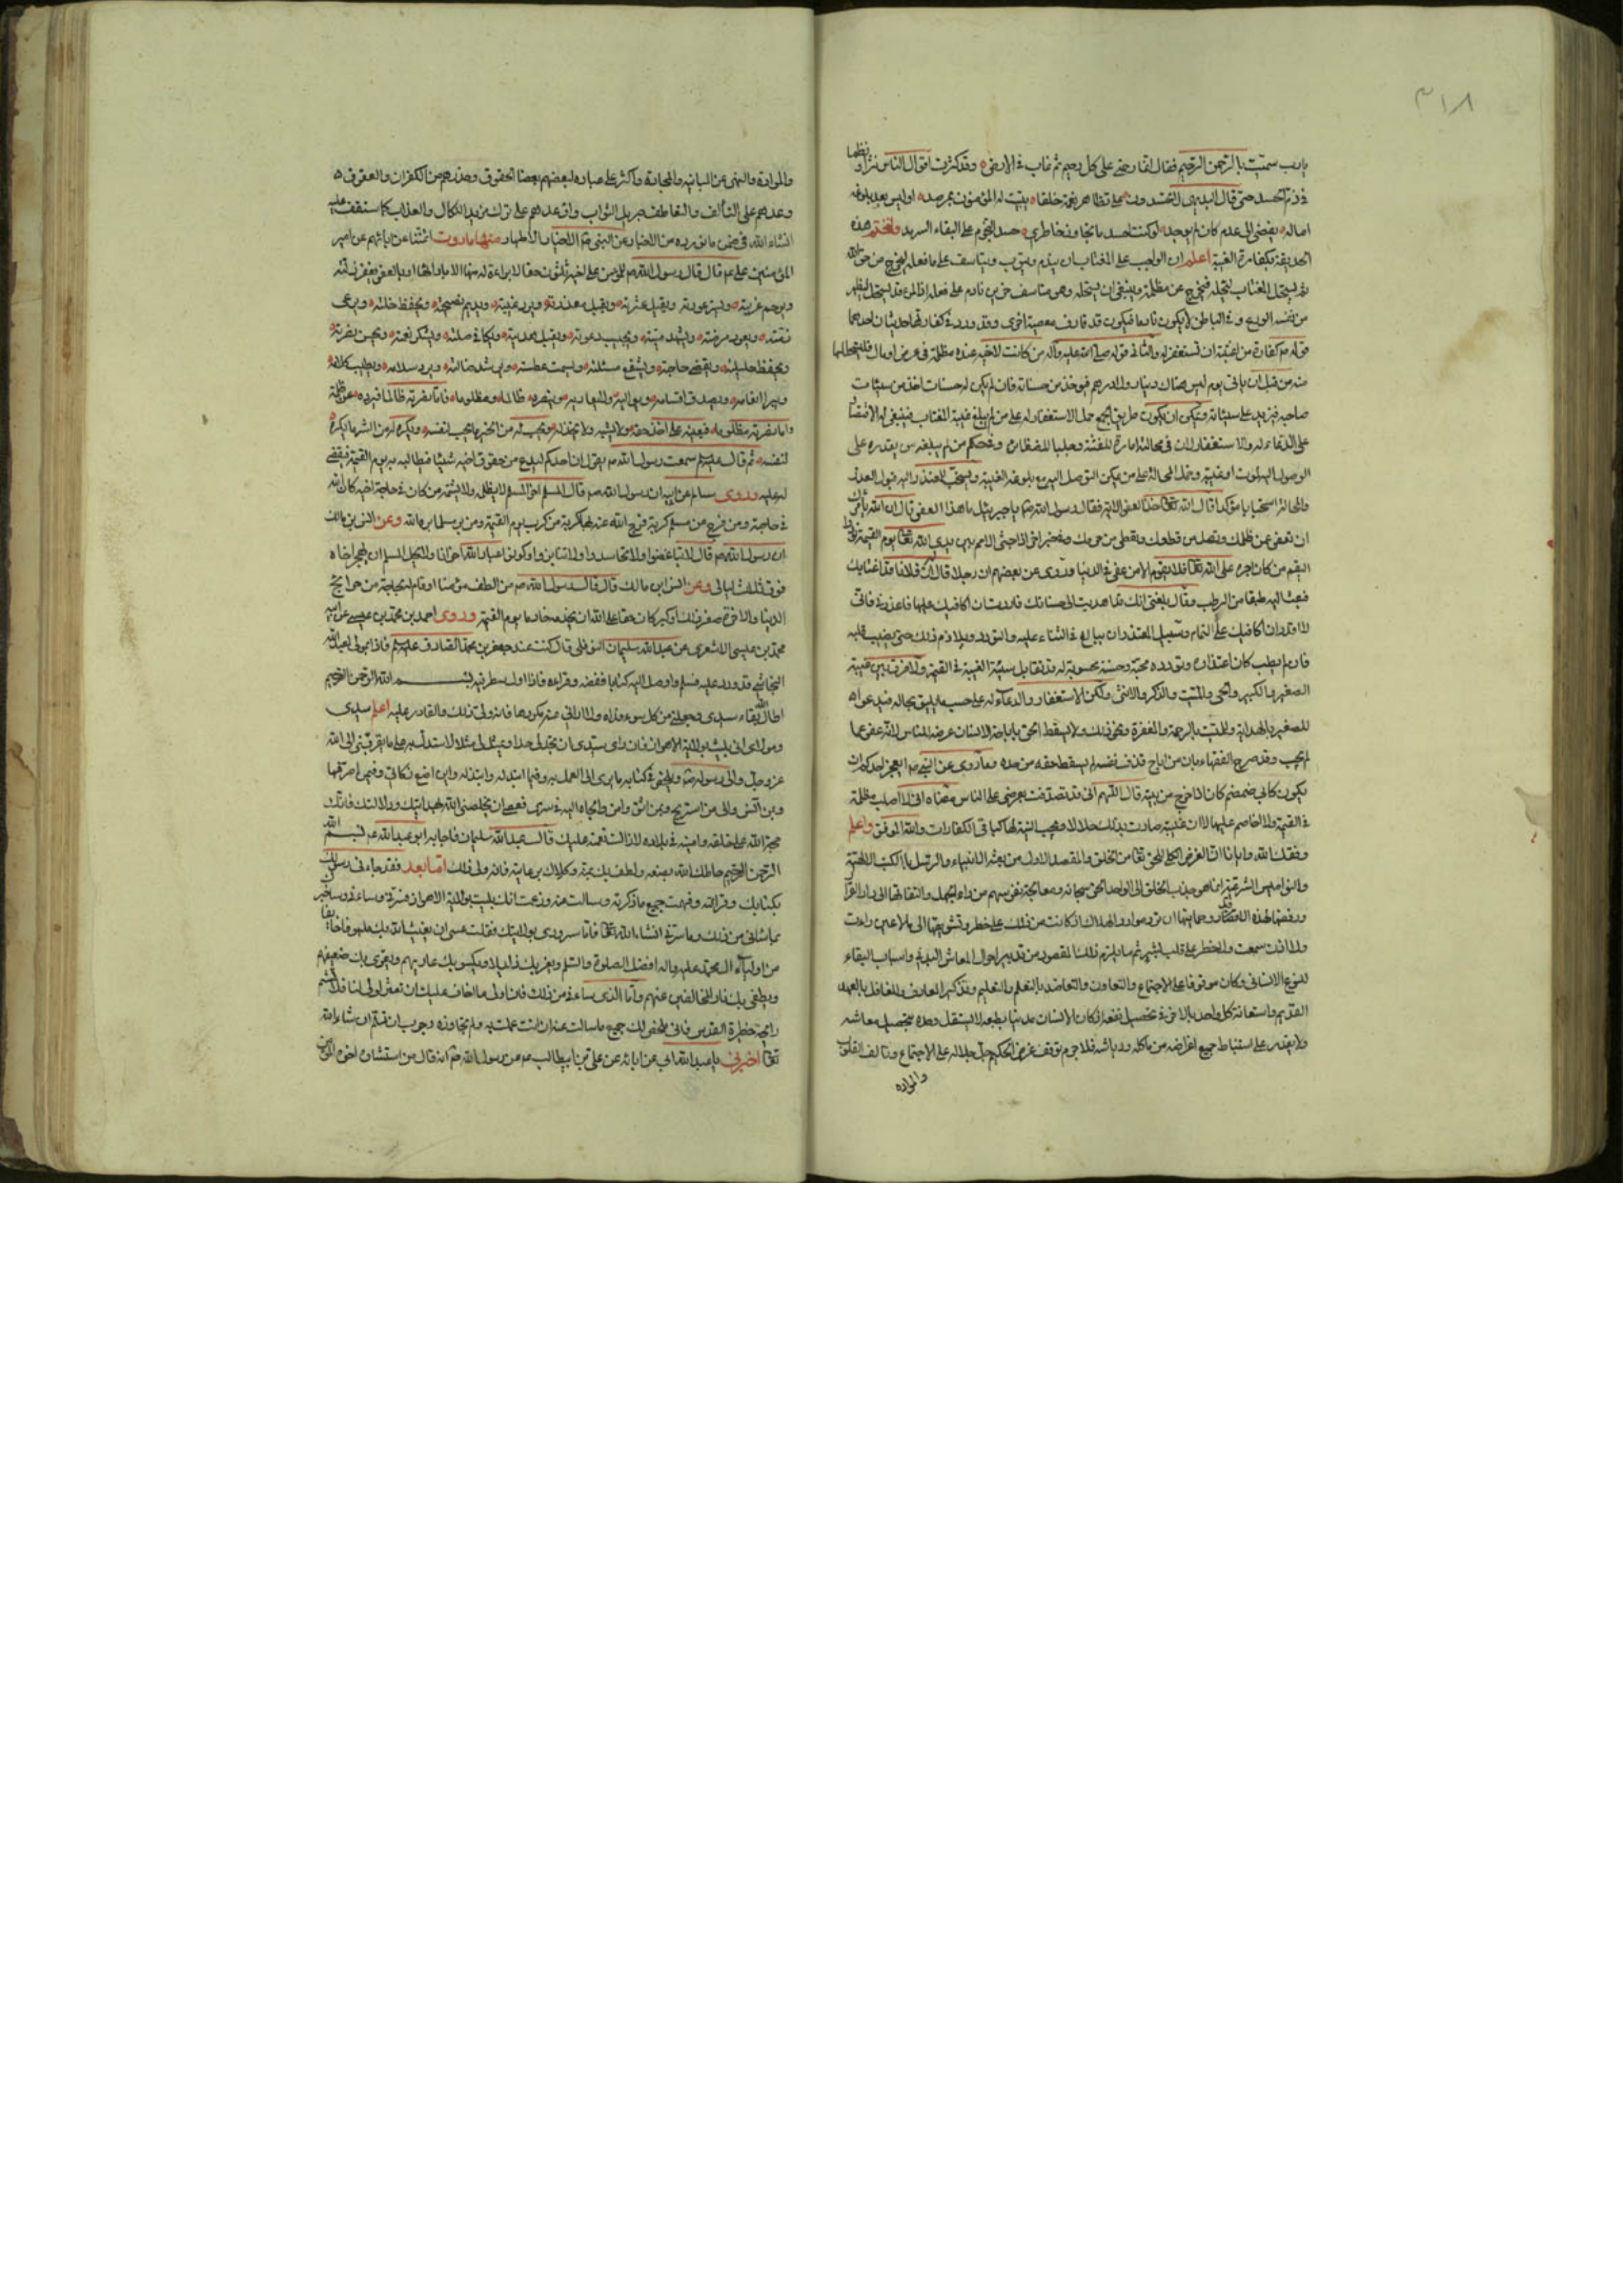 ٣١٨
يا رب سميت بالرحمن الرحيم فقال القا رحمتي على كل رحيم ثم غاب في الارض وقد كثرت اقوال الناس نثرا ونظما
في ذم الحسد حتى قال
لو كنت احسد ما تجاوز خاطري حسد النجوم على البقاء السرمد ولنختم هذه
بكفارة الغيبة اعلم ان الواجب على المغتاب ان يندم ويتوب ويتاسف على ما فعله ليخرج من حق الله
ثم يستحل المغتاب ليحله فيخرج عن مظلمته وينبغي ان يستحله وهو متاسف حزين نادم على فعله اذ المرائي قد يستحل ليظهر
من نفسه الورع وفي الباطن لا يكون نادما فيكون قد قارف معصية اخرى وقد ورد في كفارتها حديثان احدهما
قوله ص كفارة من اغتبته ان تستغفر له والثاني قوله صلى الله عليه وآله من كانت لاخيه عنده مظلمة في عرض او مال فليتحللها
منه من قبل ان ياتي يوم ليس هناك دينار ولا درهم فيؤخذ من حسناته فان لم يكن له حسنات اخذ من سيئات
صاحبه فيزيد على سيئاته ويمكن ان يكون طريق الجمع حمل الاستغفار له على من لم يبلغ غيبته المغتاب فينبغي له الاقتصار
على الدعاء له والاستغفار لان في محالته اثارة للفتنة وجلبا للضغائن وفي حكم من لم يبلغه من لم يقدر على
الوصول اليه لموت او غيبة وحمل المحالة على من يمكن التوصل اليه مع بلوغه الغيبة ويستحب للمعتذر اليه قبول العذر
والمحالة استحبابا مؤكدا قال الله تعالى خذ العفو الاية فقال رسول الله ص يا جبرئيل ما هذا العفو قال ان الله يامرك
ان تعفو عن ظلمك وتصل من قطعك وتعطي من حرمك وفي خبر اخر اذا جثى الامم بين يدي الله تعالى يوم القيمة نودوا
ليقم من كان اجره على الله تعالى فلا يقوم الا من عفى في الدنيا وروى عن بعضهم ان رجلا قال له ان فلانا قد اغتابك
فبعث اليه طبقا من الرطب وقال بلغني انك قد اهديت الي حسناتك فاردت ان اكافيك عليها فاعذرني فاني
لا اقدر ان اكافيك على التمام وسبيل المعتذر ان يبالغ في الثناء عليه والتودد ويلازم ذلك حتى يطيب قلبه
فان لم يطب كان اعتذاره وتودده حسنة محسوبة له قد تقابل سيئة الغيبة في القيمة ولا فرق بين غيبة
الصغير والكبير والحي والميت والذكر والانثى وليكن الاستغفار والدعاء له على حسب ما يليق بحاله فيدعو
للصغير بالهداية وللميت بالرحمة والمغفرة ونحو ذلك ولا يسقط الحق باباحة الانسان عرضه للناس لانه عفو عما
لم يجب وقد صرح الفقهاء بان من اباح قذف نفسه لم يسقط حقه من حده وما روى عن النبي ص ايعجز احدكم ان
يكون كابي ضمضم كان اذا خرج من بيته قال اللهم اني قد تصدقت بعرضي على الناس معناه اني لا اطلب مظلمة
في القيمة ولا اخاصم عليها لا ان غيبته صارت بذلك حلالا وتجب النية لها كباقي الكفارات والله الموفق واعلم
وفقك الله وايانا ان الغرض الكلي للحق تعالى من الخلق والمقصد الاول من بعثة الانبياء والرسل بالكتب الالهية
والنواميس الشرعية انما هو جذب الخلق الى الواحد الحق سبحانه ومعالجة نفوسهم من داء الجهل
ولا اذن سمعت ولا خطر على قلب بشر ثم ما يلزم ذلك المقصود من تدبير احوال المعاش البدني واسباب البقاء
للنوع الانساني وكان موقوفا على الاجتماع والتعاون والتعاضد بالتعلم والتعليم وتذكير العارف والغافل بالعهد
القديم واستعانة كل واحد بالاخر في تحصيل نفعه اذ كان الانسان مدنيا بطبعه لا يستقل وحده بتحصيل معاشه
ولا يقدر على استنباط جميع اغراضه من ماكله ورياشه فلا جرم توقف غرض الحكيم جل جلاله على الاجتماع وتالف القلوب
والموادة
والموادة والنهي عن المباينة والمجانبة واكثر على عباده لبعضهم بعضا الحقوق وحذرهم من الكفران والعقوق
وعدهم على التالف والتعاطف جزيل الثواب واوعدهم على ترك مزيد النكال والعذاب كما ستقف عليه
انشاء الله في ضمن ما نورده من الاخبار عن النبي ص والاخيار الاطهار منها ما رويت عن آبائهم عن امير
المؤمنين علي ع قال قال رسول الله ص للمؤمن على اخيه ثلثون حقا لا براءة له منها الا بادائها او بالعفو يغفر زلته
ويرحم غربته ويستر عورته ويقيل عثرته ويقبل معذرته ويرد غيبته ويديم نصيحته ويحفظ خلته ويرعى
ذمته ويعود مرضته ويشهد ميتته ويجيب دعوته ويقبل هديته ويكافي صلته ويشكر نعمته ويحسن نصرته
ويحفظ حليلته ويقضي حاجته ويشفع مسئلته ويسمت عطسته ويرشد ضالته ويرد سلامه ويطيب كلامه
ويبر انعامه ويصدق اقسامه ويوالي وليه ولا يعاديه وينصره ظالما ومظلوما فاما نصرته ظالما فيرده عن ظلمه
واما نصرته مظلوما فيعينه على اخذ حقه ولا يسلمه ولا يخذله ويحب له من الخير ما يحب لنفسه ويكره له من الشر ما يكره
لنفسه ثم قال عليه السلم سمعت رسول الله ص يقول ان احدكم ليدع من حقوق اخيه شيئا فيطالبه به يوم القيمة فيقضي
له عليه وروى سالم عن ابيه ان رسول الله ص قال المسلم اخو المسلم لا يظلمه ولا يشتمه من كان في حاجة اخيه كان الله
في حاجته ومن فرج عن مسلم كربة فرج الله عنه بها كربة من كرب يوم القيمة ومن ستر مسلما ستره الله وعن انس بن مالك
ان رسول الله ص قال لا تباغضوا ولا تحاسدوا ولا تدابروا وكونوا عباد الله اخوانا ولا يحل لمسلم ان يهجر اخاه
فوق ثلث ليالي وعن انس ابن مالك قال قال رسول الله ص من الطف مؤمنا او قام له بحاجة من حوائج
الدنيا والاخرة صغر ذلك او كبر كان حقا على الله ان يخدمه خادما يوم القيمة وروى احمد بن محمد بن عيسى عن ابيه
محمد بن عيسى الاشعري عن عبد الله سليمان النوفلي قال كنت عند جعفر بن محمد الصادق عليه السلم فاذا بمولى لعبد الله
النجاشي قد ورد عليه فسلم واوصل اليه كتابا ففضه وقراءه فاذا اول سطر فيه بسم الله الرحمن الرحيم
اطال الله بقاء سيدي وجعلني من كل سوء فداه ولا اراني فيه مكروها فانه ولي ذلك والقادر عليه اعلم سيدي
ومولاي اني بليت بولاية الاهواز فان راى سيدي ان يحد لي حدا ويمثل لي مثلا لاستدل به على ما يقربني الى الله
عز وجل والى رسوله ص ويلخص في كتابه ما يرى لي العمل به وفيما ابتذله وابتذله واين اضع زكاتي وفيمن اصرفها
وبمن آنس والى من استريح وبمن اثق وامن والجأ اليه في سري فعسى ان يخلصني الله بهدايتك ودلالتك فانك
حجة الله على خلقه وامينه في بلاده لا زالت نعمته عليك قال عبد الله سليمان فاجابه ابو عبد الله ع بسم الله
الرحمن الرحيم حاطك الله بصنعه ولطف بك بمنه وكلاك برعايته فانه ولي ذلك اما بعد فقد جاءني رسولك
بكتابك وقراته وفهمت جميع ما ذكرته وسالت عنه وزعمت انك بليت بولاية الاهواز فسرني وساءني وساخبرك
بما ساءني من ذلك وما سرني انشاء الله تعالى فاما سروري بولايتك فقلت عسى ان يغيث الله بك ملهوفا خائفا
من اولياء آل محمد عليه واله افضل الصلوة والسلم ويعز بك ذليلا ويكسو بك عاريهم ويقوي بك ضعيفهم
ويطفي بك نار المخالفين عنهم واما الذي ساءني من ذلك فان ادنى ما اخاف عليك ان تعثر بولي لنا فلا تشم
رايحة حظيرة القدس فاني ملخص لك جميع ما سالت عنه ان انت عملت به ولم تجاوزه رجوت ان تسلم ان شاء الله
تعالى اخبرني يا عبد الله ابي عن ابائه عن علي بن ابيطالب ع عن رسول الله ص انه قال من استشاره اخوه المؤمن